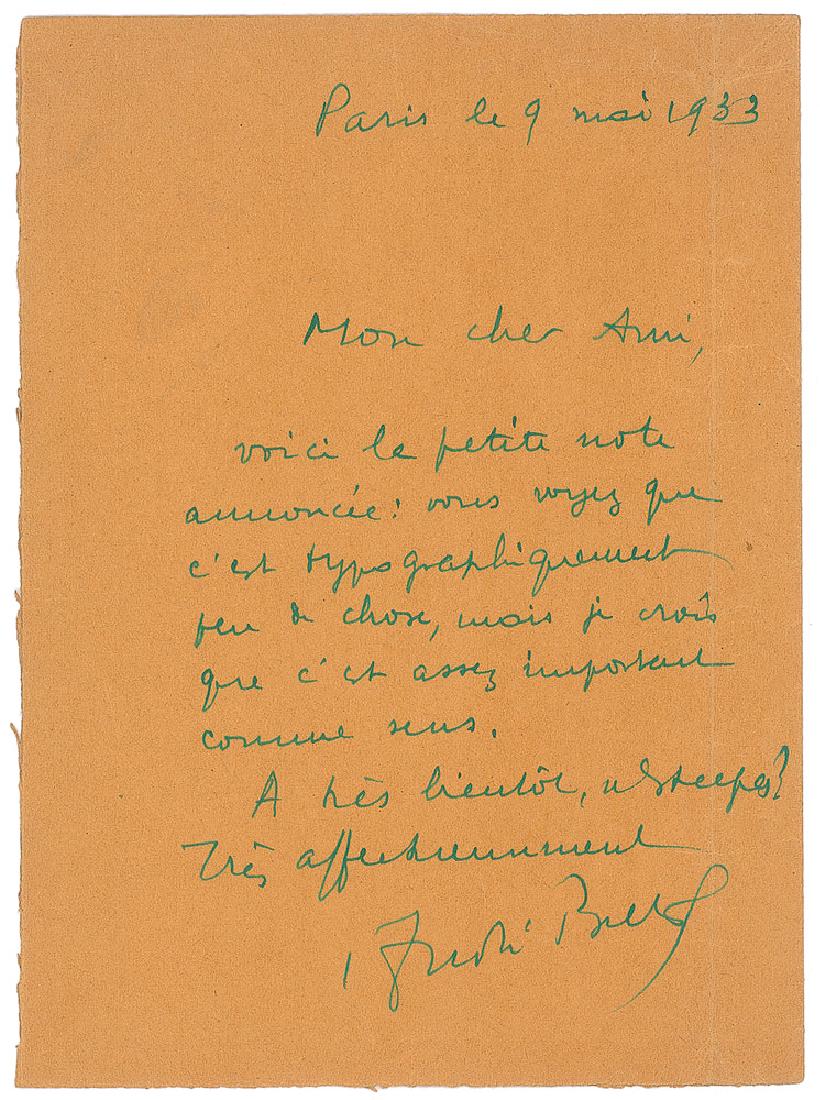 Paris le 9 mai 1933
Mon cher Ami,
voici la petite note
annoncée : vous voyez que
c'est typographiquement
peu de chose, mais je crois
que c'est assez important
comme sens.
A très bientôt, n'est-ce pas?
Très affectueusement